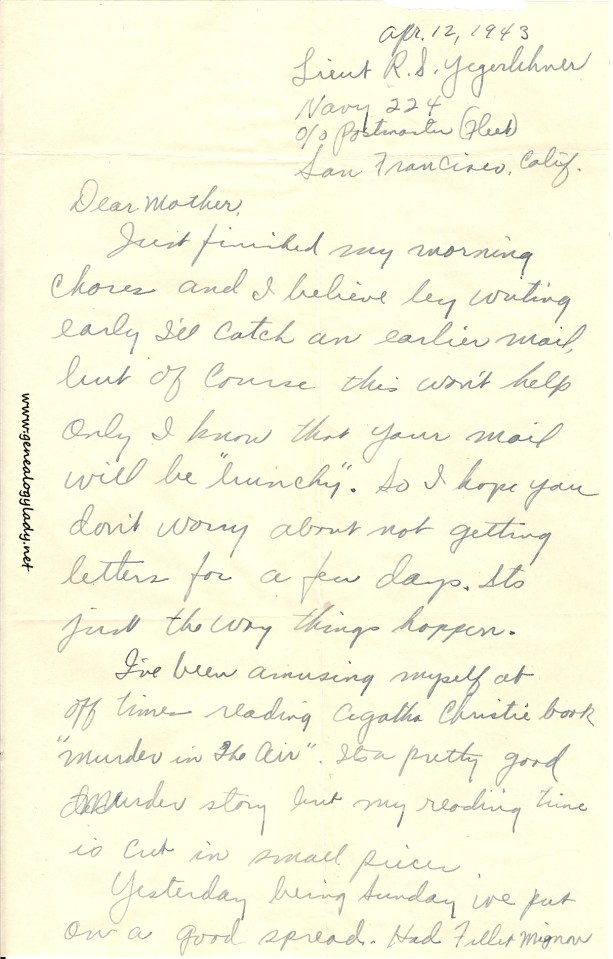 Apr. 12, 1943
Lieut R. S. Yegerlehner
Navy 224
c/o Postmaster (Fleet)
San Francisco, Calif.
Dear Mother,
Just finished my morning
chores and I believe by writing
early I'll catch an earlier mail,
but of course this won't help
only I know that your mail
will be "bunchy". So I hope you
don't worry about not getting
letters for a few days. Its
just the way things happen.
I've been amusing myself at
off times reading Agatha Christie book
"Murder in the Air". Its a pretty good
murder story but my reading time
is cut in small pieces
Yesterday being Sunday we put
on a good spread. Had Fillet Mignon
www.genealogylady.net